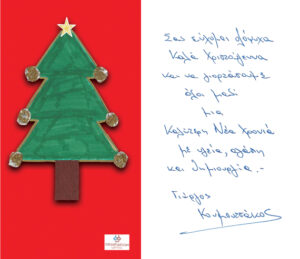 Σας εύχομαι ολόψυχα
Καλά Χριστούγεννα
και να γιορτάσουμε
όλοι μαζί
μια
Καλύτερη Νέα Χρονιά
με υγεία, αγάπη
και δημιουργία.-
Γιώργος